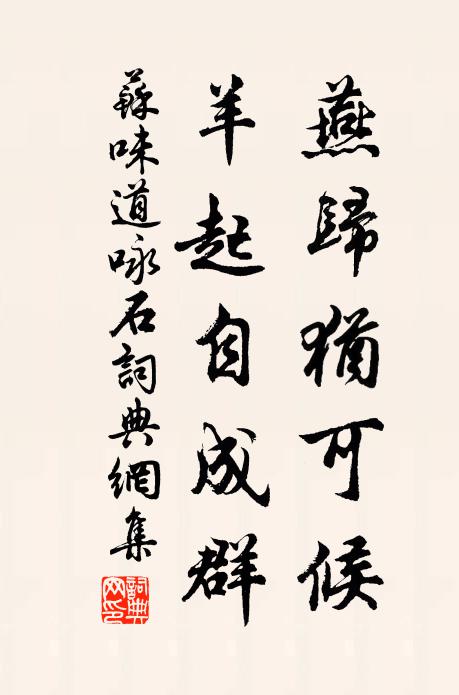 燕歸猶可候
羊起自成群
蘇味道咏石詞典網集
詞典網印